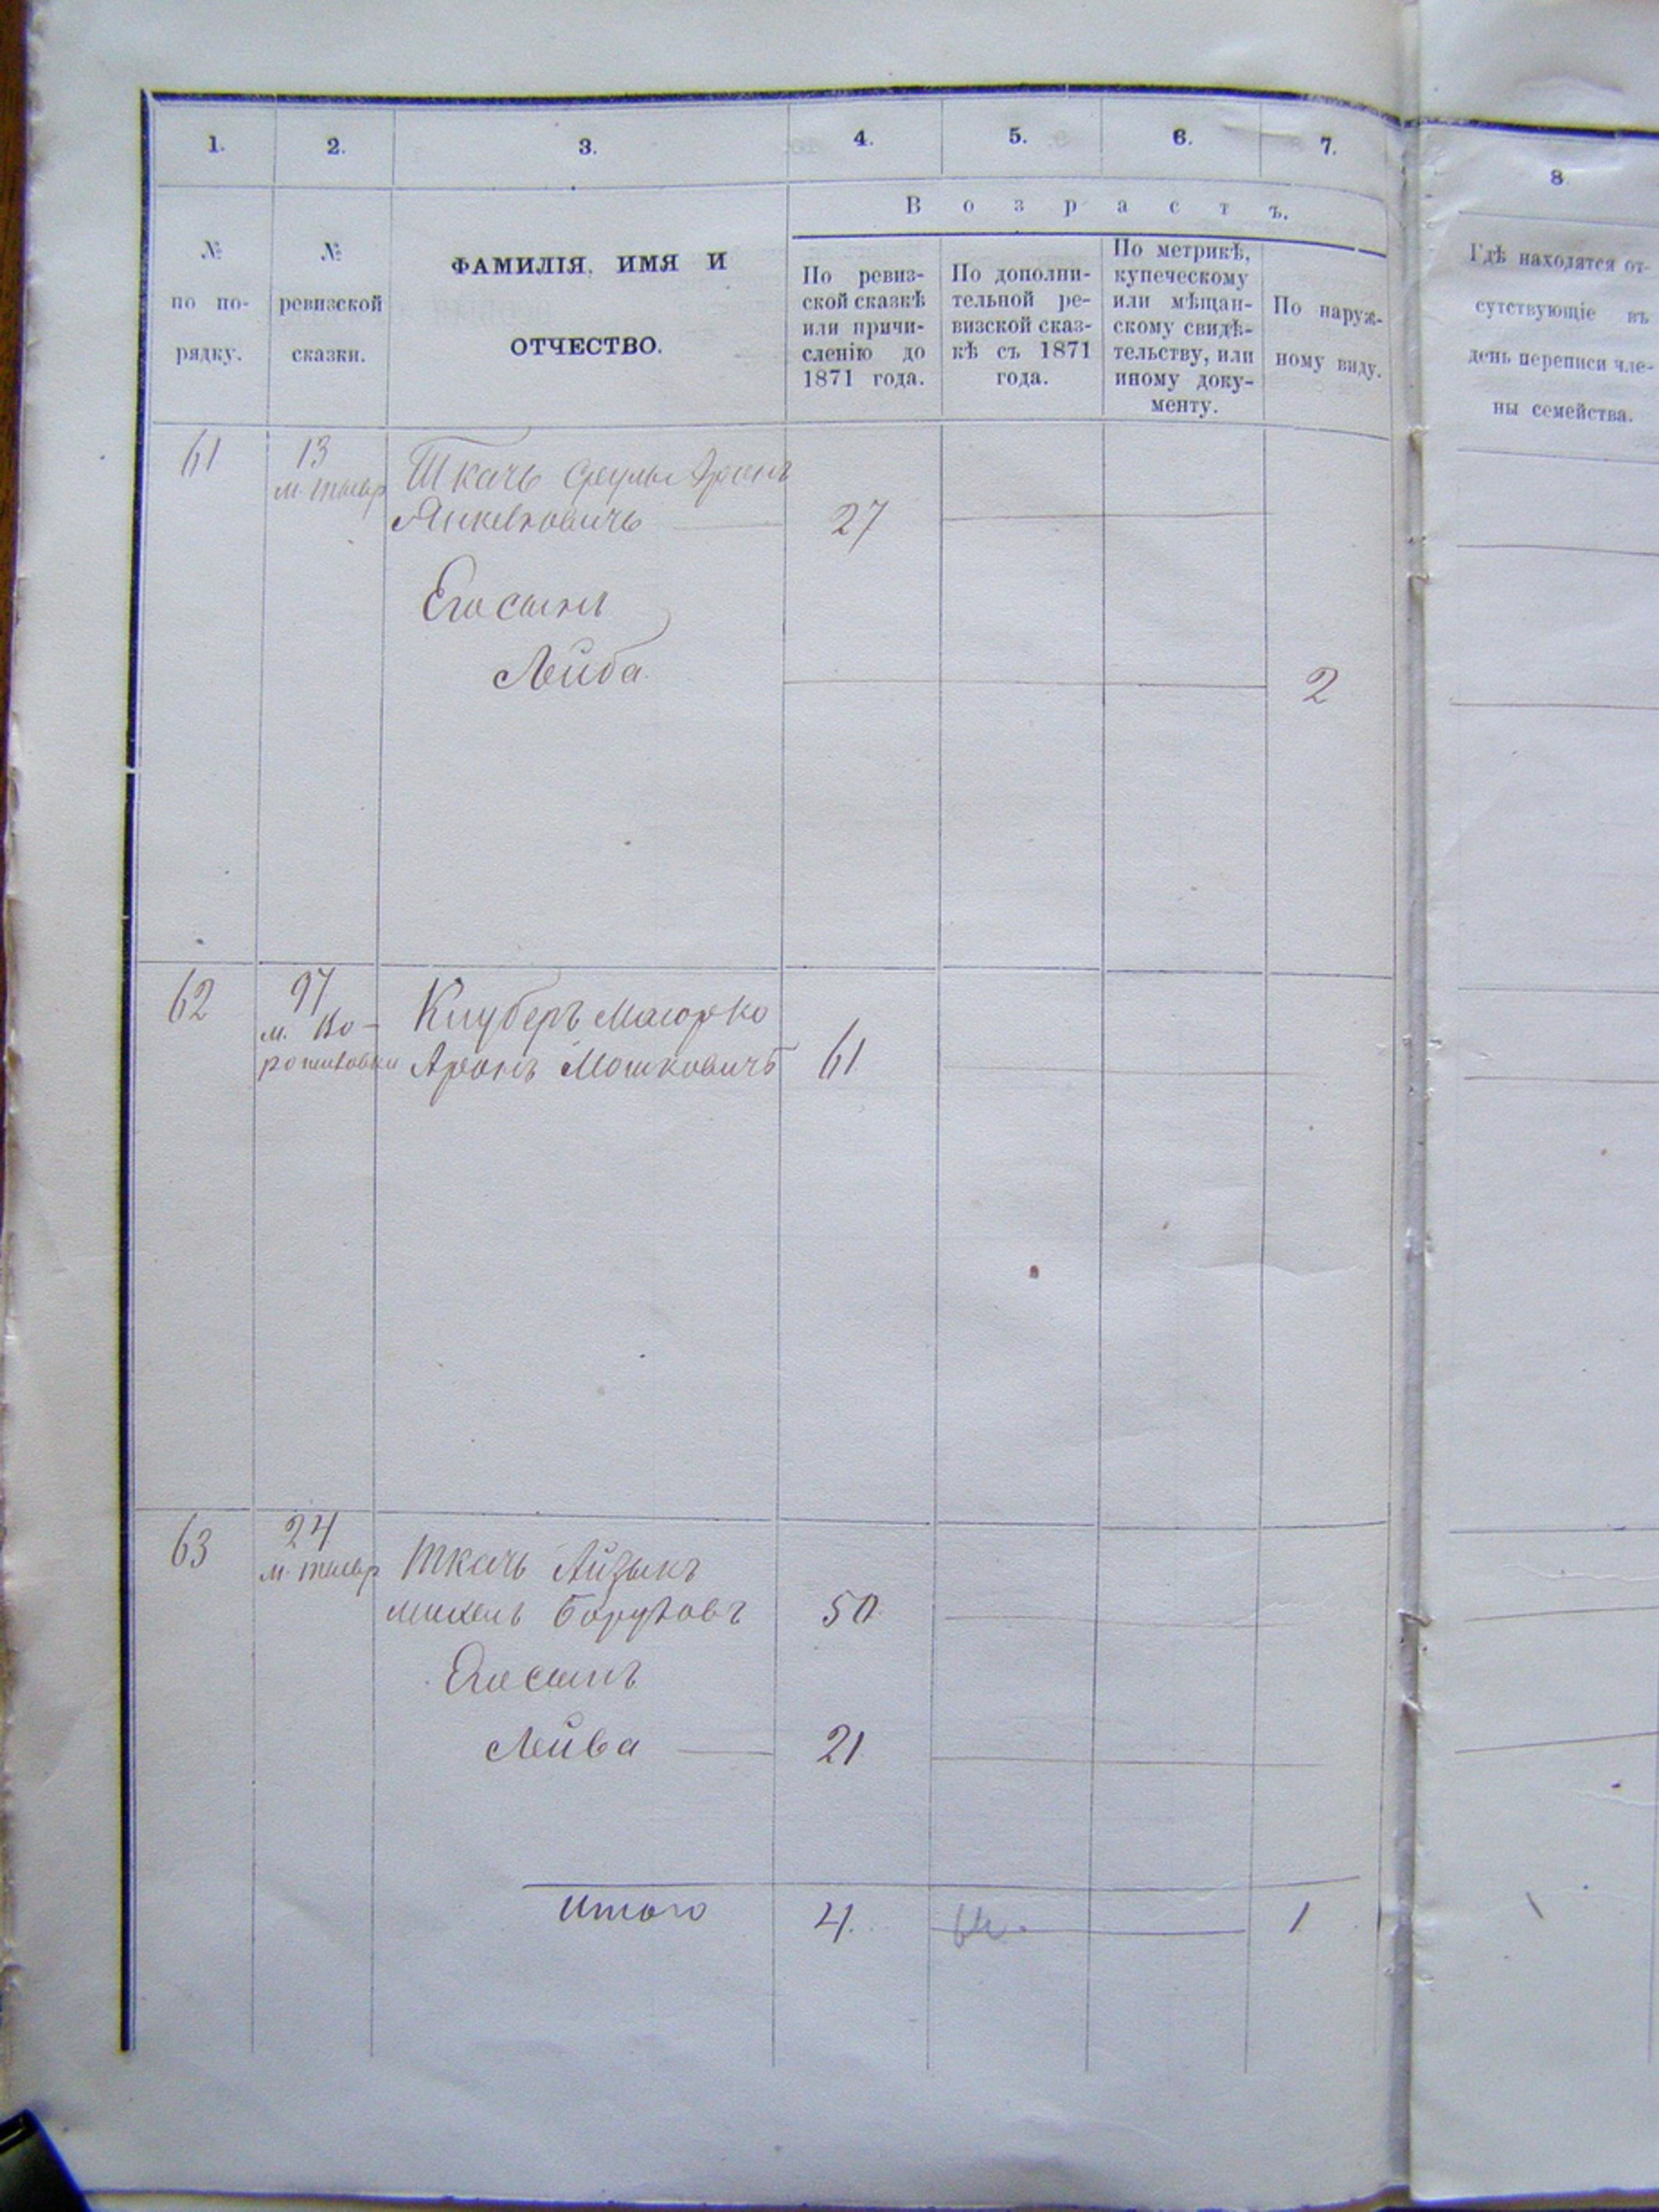 1. 2. 3. 4. 5. 6. 7. 8
Возрастъ.
№ по по-
рядку.
№
ревизской
сказки.
ФАМИЛІЯ, ИМЯ И
ОТЧЕСТВО.
По ревиз-
ской сказкѣ
или причи-
сленію до
1871 года.
По дополни-
тельной ре-
визской сказ-
кѣ съ 1871
года.
По метрикѣ,
купеческому
или мѣщан-
скому свидѣ-
тельству, или
иному доку-
менту.
По наруж-
ному виду.
Гдѣ находятся от-
сутствующіе въ
день переписи чле-
ны семейства.
61 13 Ткачь Аронъ
Янкелковичь 27
Его сынъ
Лейба 2
62 97 Клуберъ Маюрко
м. Во-
Аронъ Мошковичъ 61
63 24 Ткачь Айзыкъ
Михель Боруховъ 50
Его сынъ
Лейба 21
Итого 4. 1